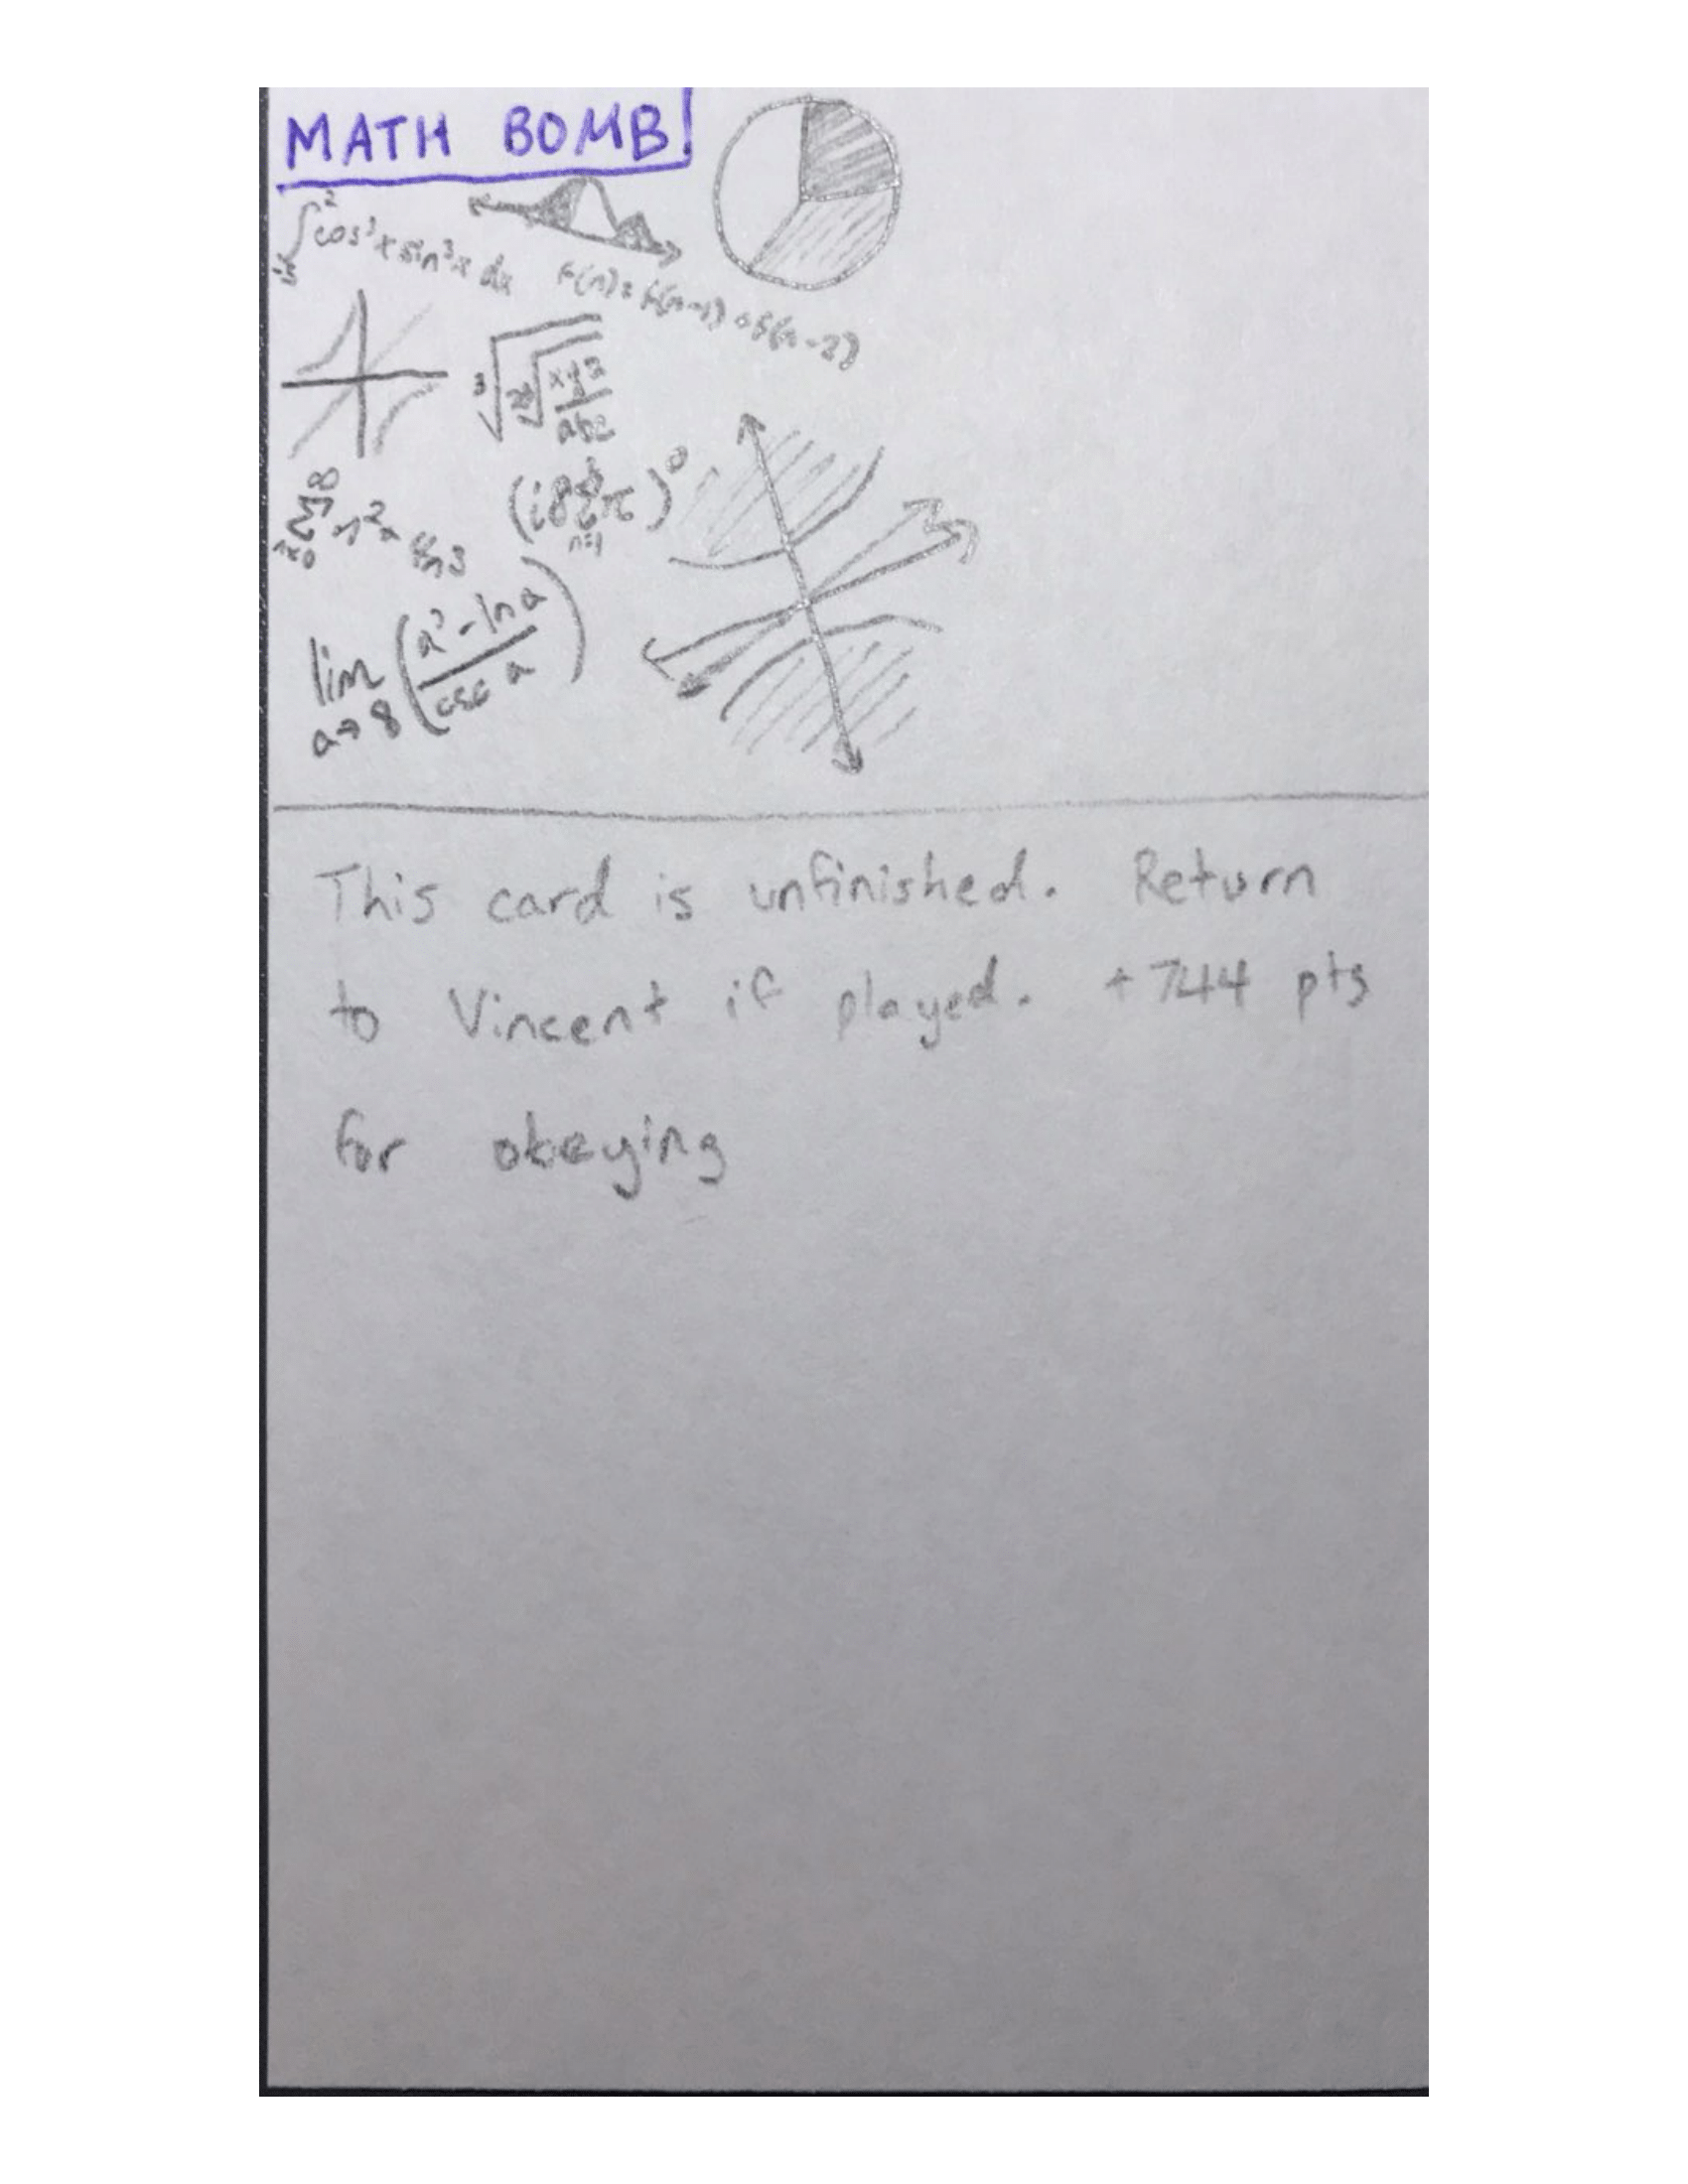 MATH BOMB!
2
∫cos³x sin³x dx
f(n) = f(n-1) + f(n-2)
3
xyz
abc
∞
Σ n²
n=0
(i8Σπ)⁰
n=1
lim (a³ - ln a
a→8 csc a)
This card is unfinished. Return
to Vincent if played. +744 pts
for obeying